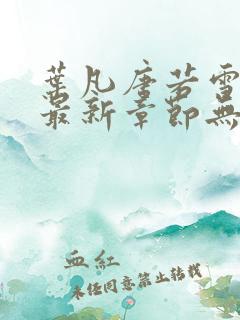 葉凡唐若雪
最新章節無
血紅
未经同意禁止转载